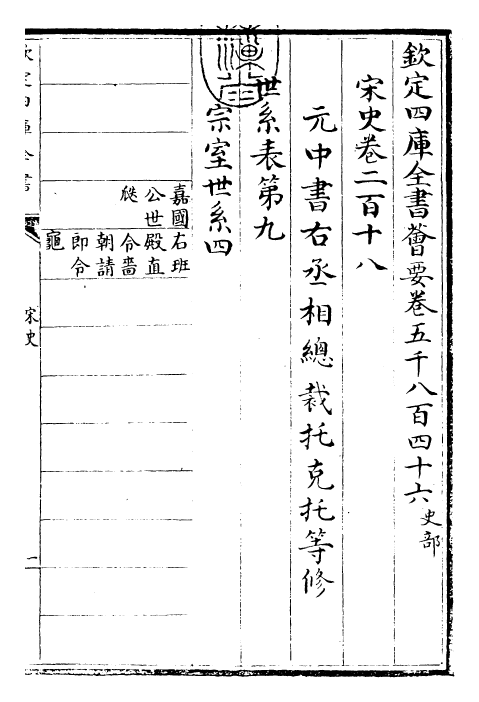 欽定四庫全書薈要卷五千八百四十六史部
宋史卷二百十八
元中書右丞相總裁托克托等修
世系表第九
宗室世系四
嘉國
公世
右班
殿直
令嗇
朝請
即令
龜
欽定四庫全書
宋史
一